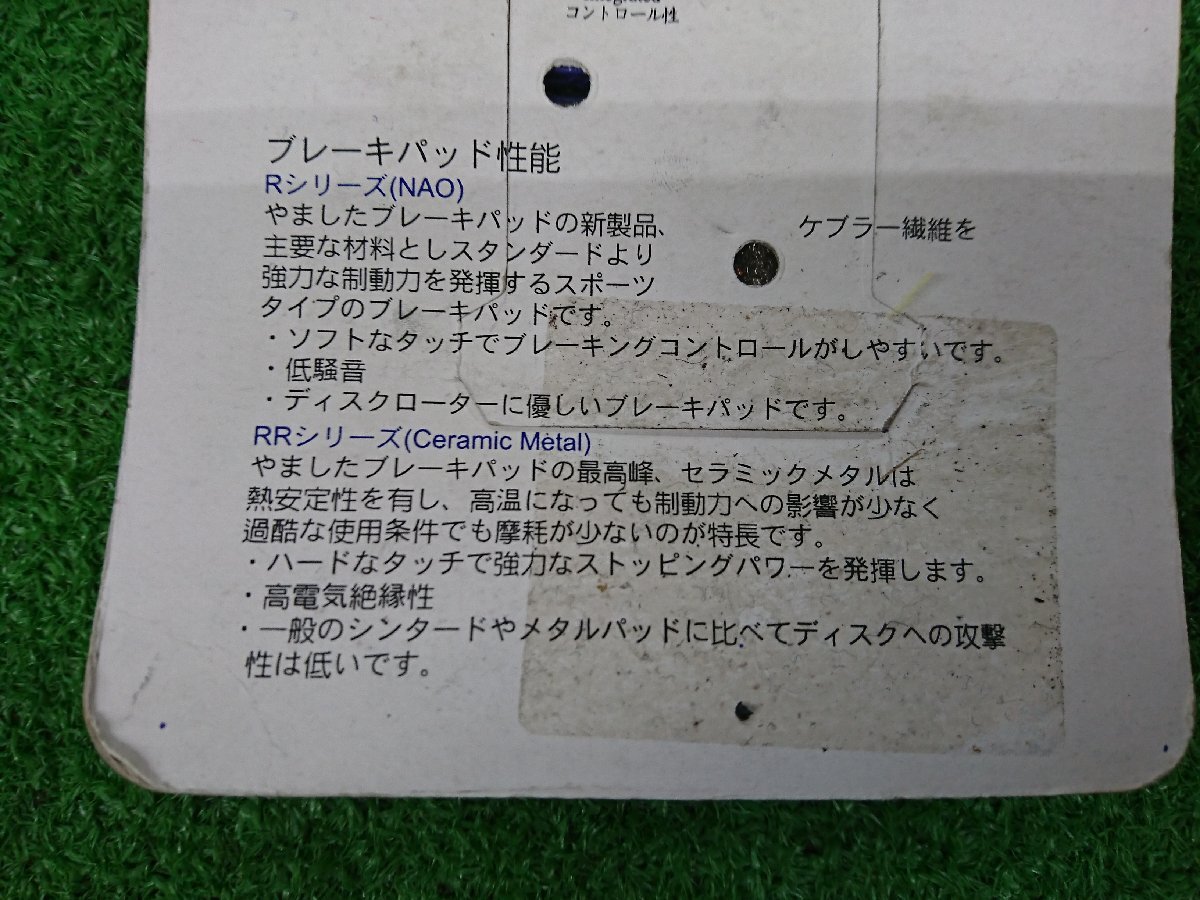 コントロール性
ブレーキパッド性能
Rシリーズ(NAO)
やましたブレーキパッドの新製品、 ケブラー繊維を
主要な材料としスタンダードより
強力な制動力を発揮するスポーツ
タイプのブレーキパッドです。
・ソフトなタッチでブレーキングコントロールがしやすいです。
・低騒音
・ディスクローターに優しいブレーキパッドです。
RRシリーズ(Ceramic Metal)
やましたブレーキパッドの最高峰、セラミックメタルは
熱安定性を有し、高温になっても制動力への影響が少なく
過酷な使用条件でも摩耗が少ないのが特長です。
・ハードなタッチで強力なストッピングパワーを発揮します。
・高電気絶縁性
・一般のシンタードやメタルパッドに比べてディスクへの攻撃
性は低いです。